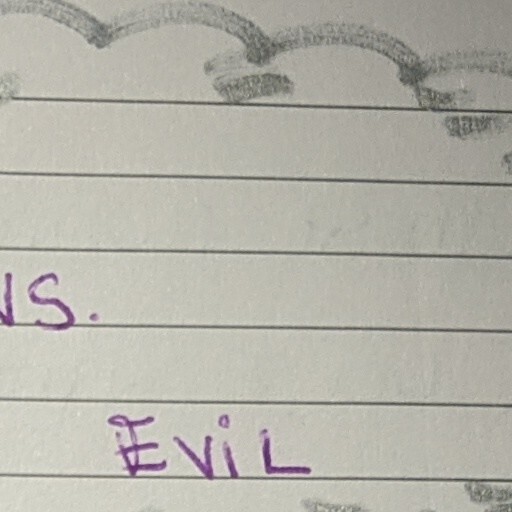 VS.
EViL